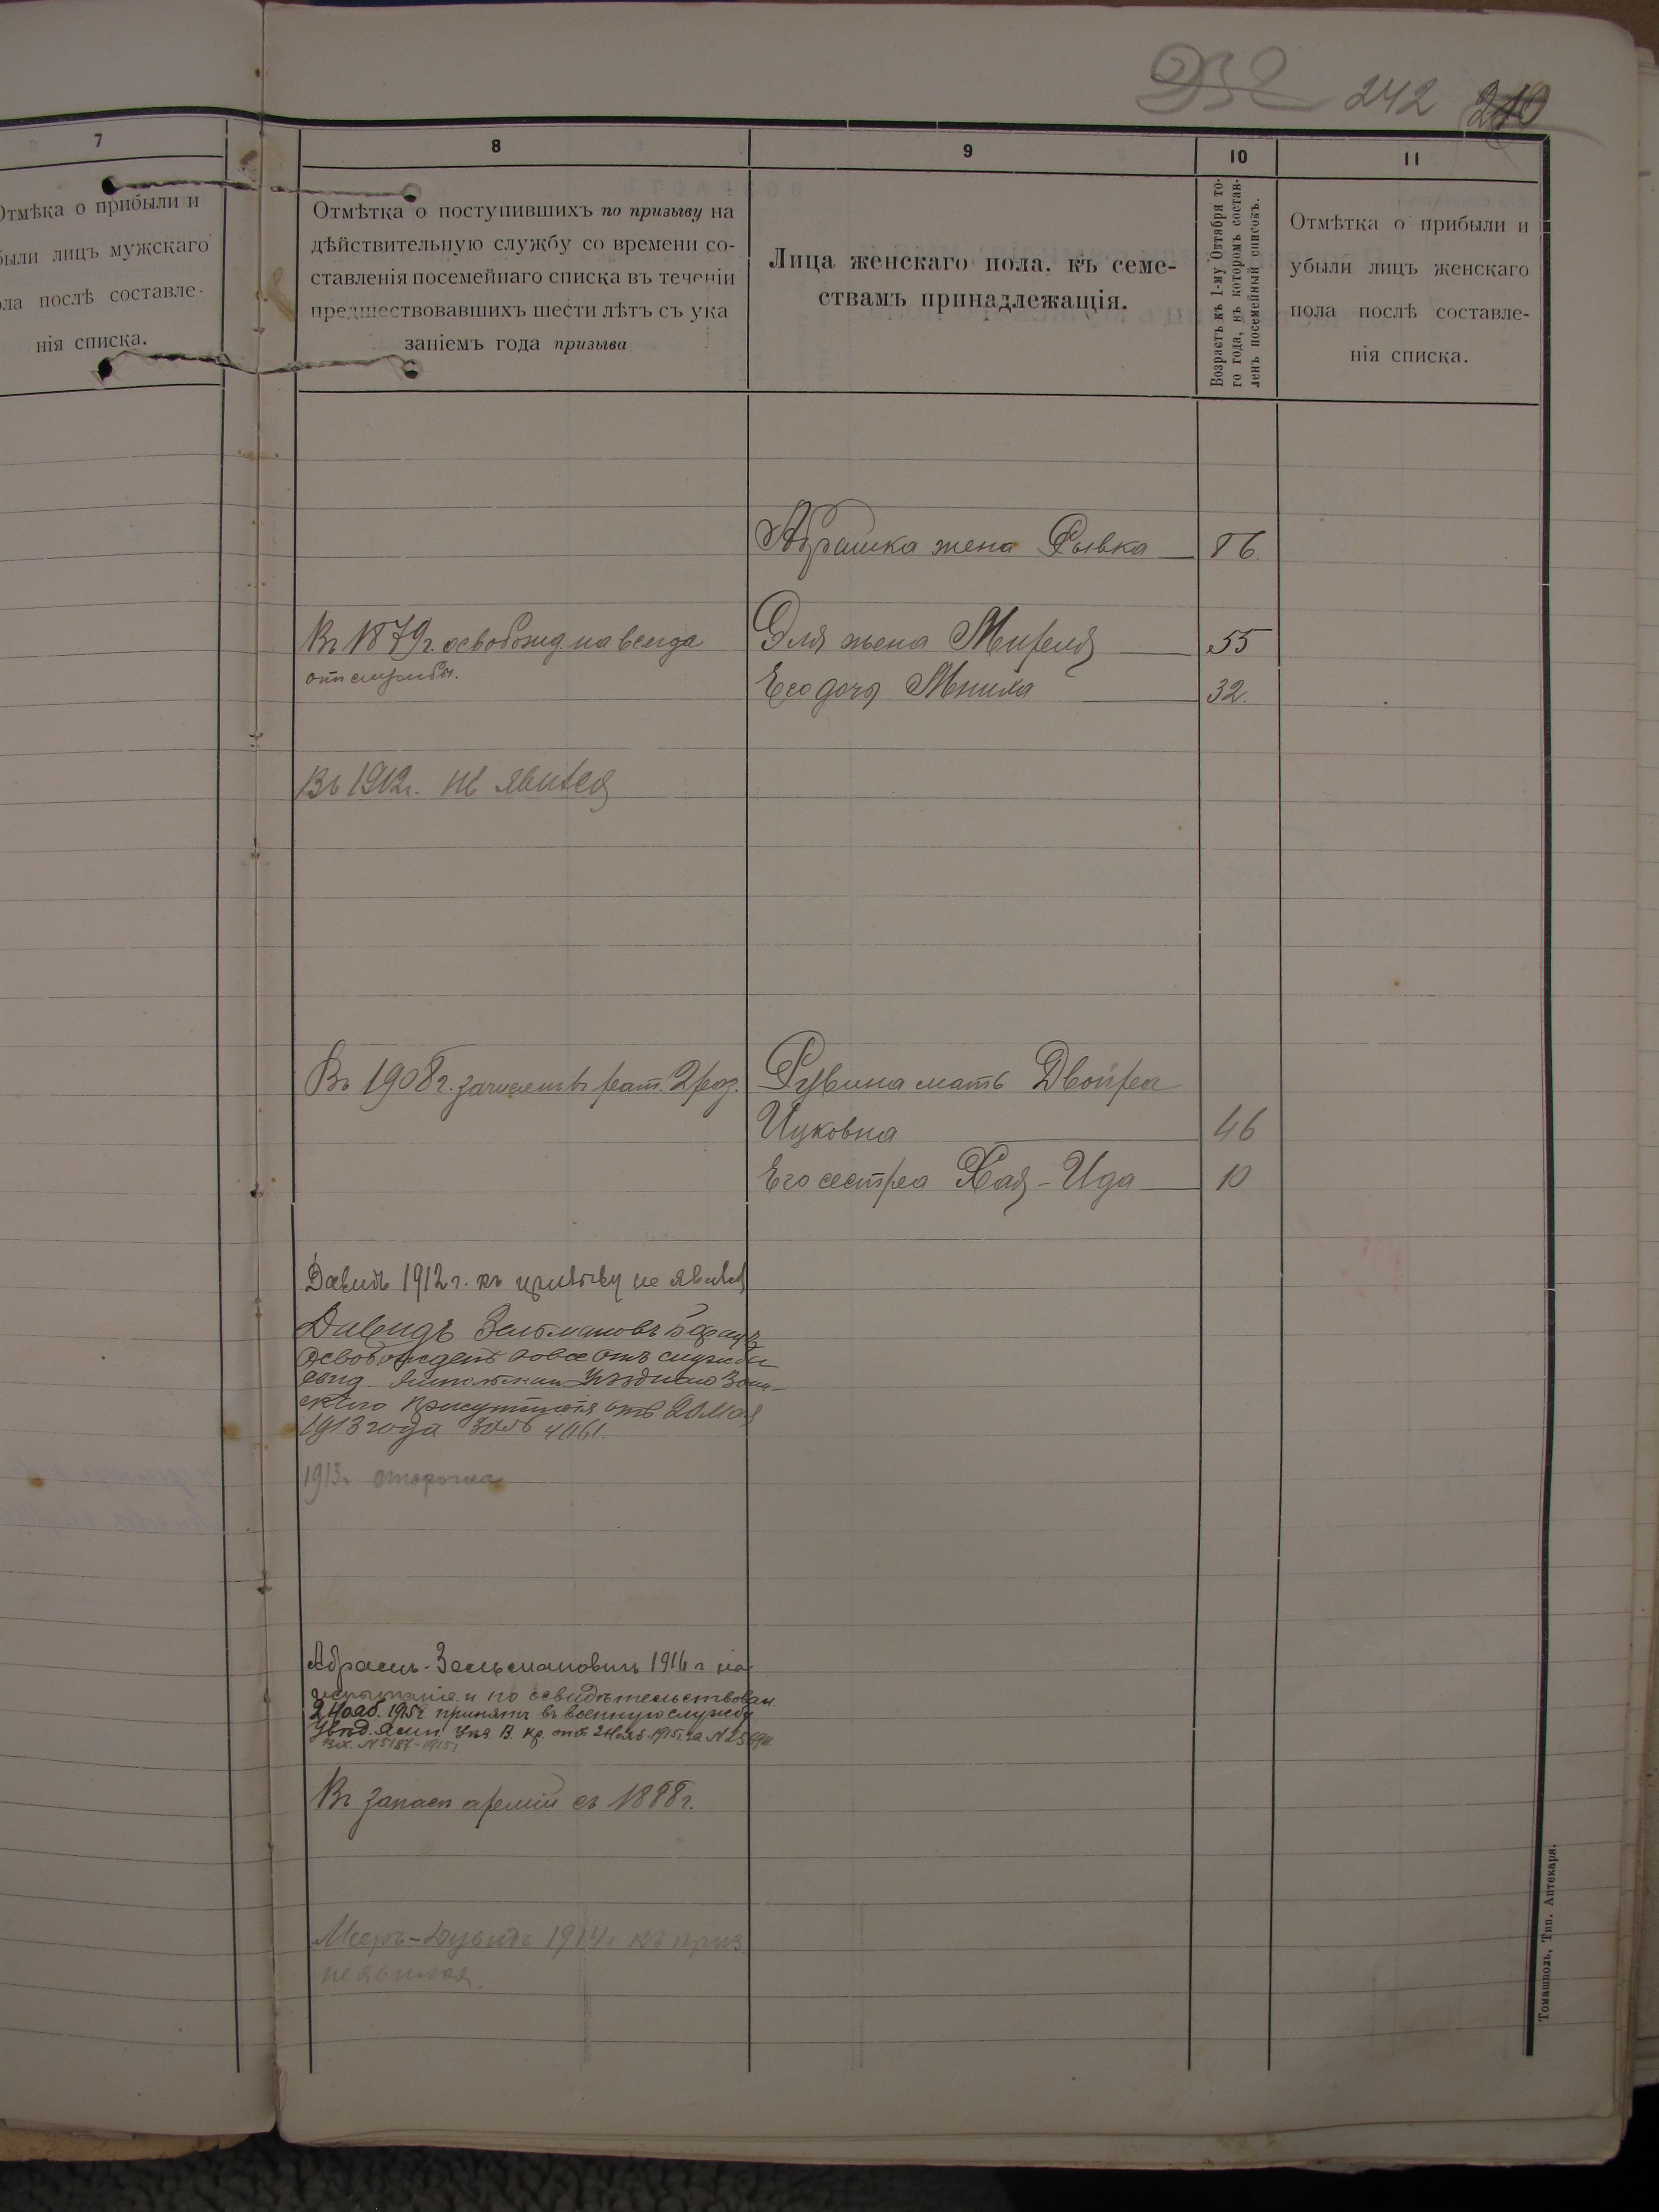 232 242 210
7
Отмѣтка о прибыли и
были лицъ мужскаго
ола послѣ составле-
нія списка.
8
Отмѣтка о поступившихъ по призыву на
дѣйствительную службу со времени со-
ставленія посемейнаго списка въ теченіи
предшествовавшихъ шести лѣтъ съ ука
заніемъ года призыва
9
Лица женскаго пола, къ семе-
ствамъ принадлежащія.
10
Возрастъ къ 1-му Октября то-
го года, въ которомъ состав-
ленъ посемейный списокъ.
11
Отмѣтка о прибыли и
убыли лицъ женскаго
пола послѣ составле-
нія списка.
Абрашка жена Рывка 86.
Въ 1879г. освобожд. на всегда
отъ службы.
Эля жена Мирля 55
Его дочь 32.
Въ 1912г. не явился
Въ 1908г. зачисленъ въ рат. 2 раз.
Рувина мать Двойра
Ицковна 46
Его сестра Хая-Ида 10
Давидъ 1912 г. къ призыву не явился
Давидъ Зельмановъ
освобожденъ вовсе отъ службы
Уѣзднаго Воин-
скаго Присутствія отъ 20 Мая
1913 года за № 4061.
1913г. отсрочка
Абрамъ-Зельмановичъ 1916 г на
испытаніе и по освидѣтельствован.
2 Нояб. 1915г. принятъ въ военную службу
Увѣд. Ямп. Уѣз. В. Пр. отъ 2 Нояб. 1915г. за №
Вх. № 5187-1915г
Въ запасѣ арміи съ 1888г.
Меръ-Дувидъ 1914г къ приз.
не явился.
Томашполь, Тип. Аптекаря.